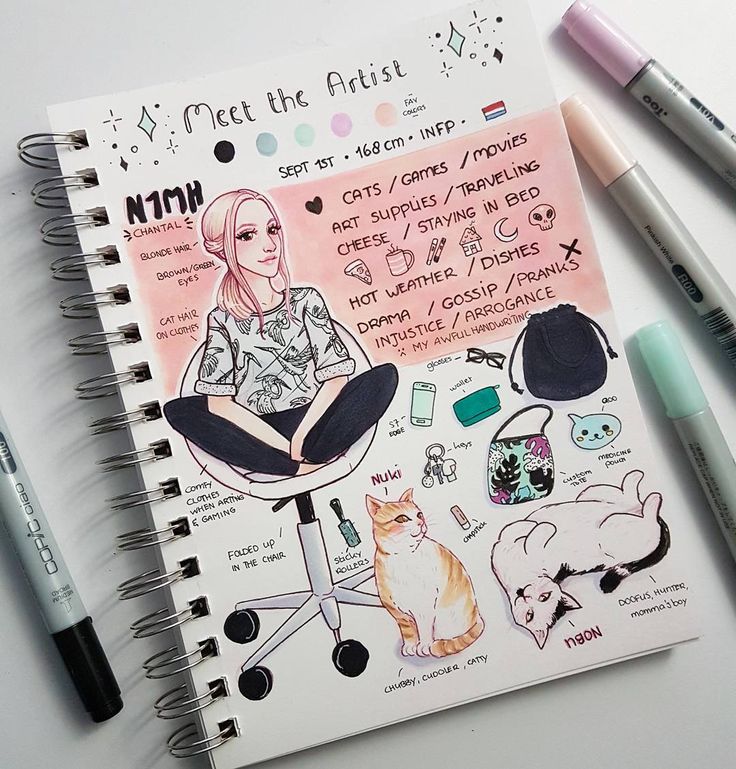 Meet the Artist
FAV
COLORS
SEPT 1ST • 168 CM • INFP •
N1MH
CHANTAL
BLONDE HAIR
BROWN/GREEN
EYES
CAT HAIR
ON CLOTHES
CATS / GAMES / MOVIES
ART SUPPLIES / TRAVELING
CHEESE / STAYING IN BED
HOT WEATHER / DISHES
DRAMA / GOSSIP / PRANKS
INJUSTICE / ARROGANCE
MY AWFUL HANDWRITING
glasses
S7
EDGE
wallet
keys
custom
tote
MEDICINE
POUCH
COMFY
CLOTHES
WHEN ARTING
& GAMING
FOLDED UP
IN THE CHAIR
sticky
ROLLERS
chapstick
NUKI
CHUBBY, CUDDLER, CATTY
NOBU
DOOFUS, HUNTER,
momma's boy
COPIC ciao
MEDIUM
BROAD
Too
Pinkish White
R00